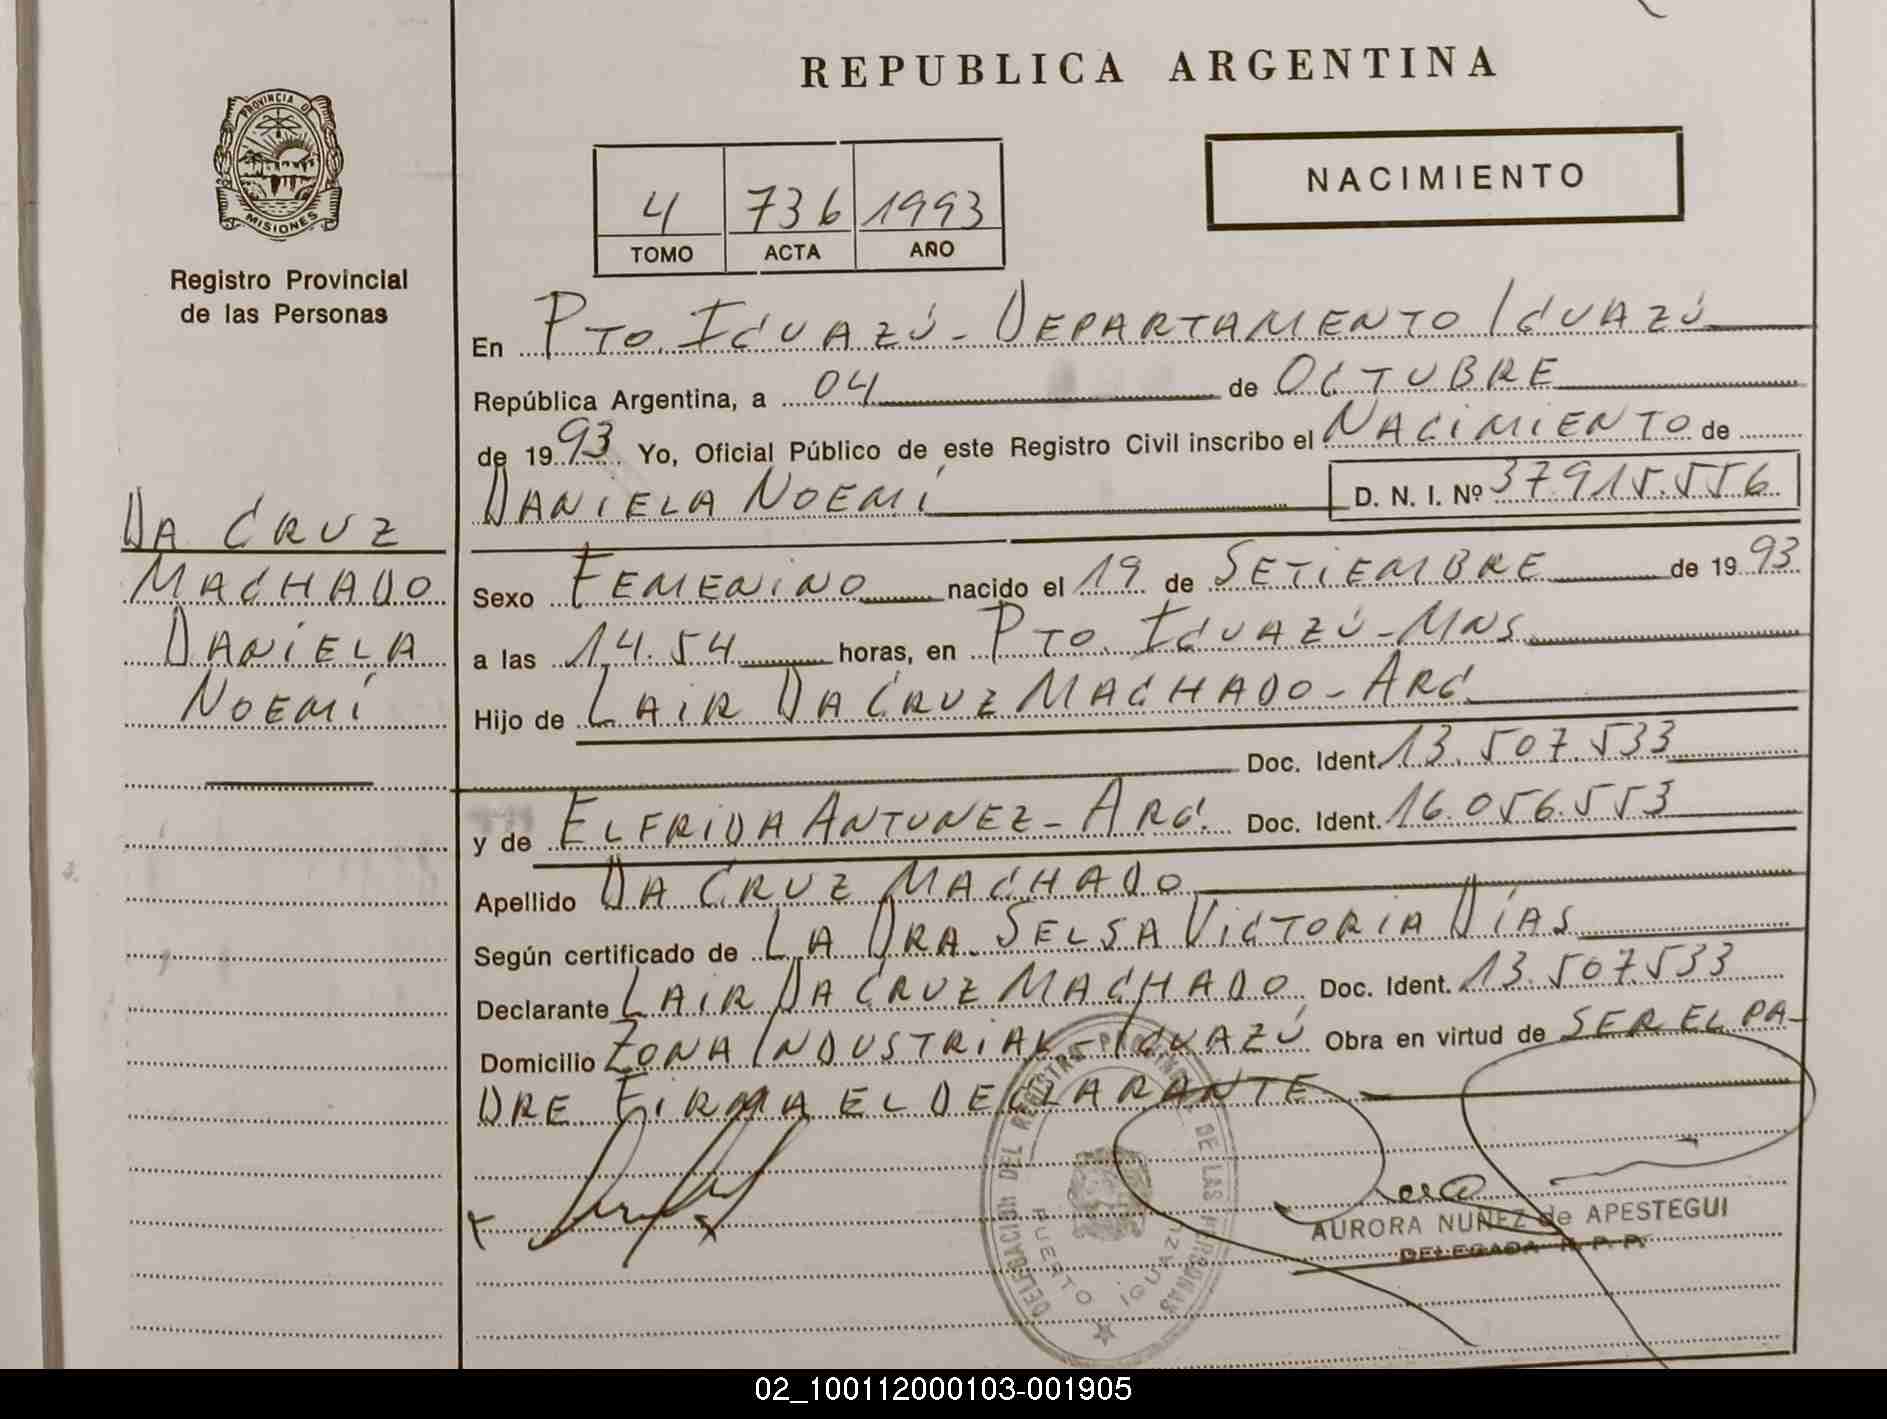 REPUBLICA ARGENTINA
PROVINCIA DE
MISIONES
Registro Provincial
de las Personas
NACIMIENTO
4 736 1993
TOMO ACTA AÑO
En PTO. IGUAZÚ - DEPARTAMENTO IGUAZÚ
República Argentina, a 04 de OCTUBRE
de 1993 Yo, Oficial Público de este Registro Civil inscribo el NACIMIENTO de
DANIELA NOEMÍ D. N. I. Nº 37915.556
DA CRUZ
MACHADO
DANIELA
NOEMÍ
Sexo FEMENINO nacido el 19 de SETIEMBRE de 1993
a las 14.54 horas, en PTO. IGUAZÚ - MNS
Hijo de LAIR DA CRUZ MACHADO - ARG.
Doc. Ident. 13.507.533
y de ELFRIDA ANTUNEZ - ARG. Doc. Ident. 16.056.553
Apellido DA CRUZ MACHADO
Según certificado de LA DRA. SELSA VICTORIA DÍAS
Declarante LAIR DA CRUZ MACHADO Doc. Ident. 13.507.533
Domicilio ZONA INDUSTRIAL - IGUAZÚ Obra en virtud de SER EL PA-
DRE FIRMA EL DECLARANTE
DELEGACION DEL REGISTRO PROVINCIAL DE LAS PERSONAS
PUERTO IGUAZU
AURORA NUÑEZ de APESTEGUI
DELEGADA R. P. P.
02_100112000103-001905